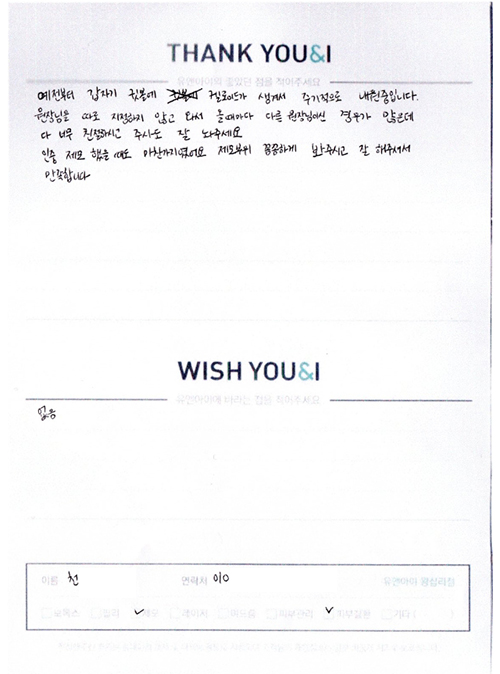 THANK YOU&I
유앤아이의 좋았던 점을 적어주세요
예전부터 갑자기 귓볼에 귓볼에 켈로이드가 생겨서 주기적으로 내원중입니다.
원장님을 따로 지정하지 않고 와서 올때마다 다른 원장님이신 경우가 많은데
다 너무 친절하시고 주사도 잘 놔주세요
인중 제모 했을 때도 마찬가지였어요 제모부위 꼼꼼하게 봐주시고 잘 해주셔서
만족합니다
WISH YOU&I
유앤아이에 바라는 점을 적어주세요
없음
이름 천 연락처 010 유앤아이 왕십리점
보톡스 필러 제모 레이저 여드름 피부관리 피부질환 기타 ( )